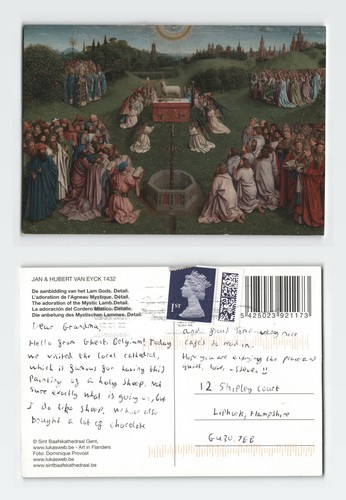 JAN & HUBERT VAN EYCK 1432
De aanbidding van het Lam Gods. Détail.
L'adoration de l'Agneau Mystique. Détail.
The adoration of the Mystic Lamb. Detail.
La adoración del Cordero Místico. Détalle.
Die anbetung des Mystischen Lammes. Detail.
1ST
5 425023 921173
Dear Grandma,
Hello from Ghent, Belgium! Today
we visited the local cathedral,
which is famous for having this
Painting of a holy sheep. Not
sure exactly what is going on, but
I do like sheep. We have also
bought a lot of chocolate
and found some very nice
cafes to read in.
Hope you are enjoying the peace and
quiet, love
12 Shipley Court
Liphook, Hampshire
GU30 7EE
© Sint Baafskathedraal Gent,
www.lukasweb.be - Art in Flanders
Foto: Dominique Provost
www.lukasweb.be
www.sintbaafskathedraal.be